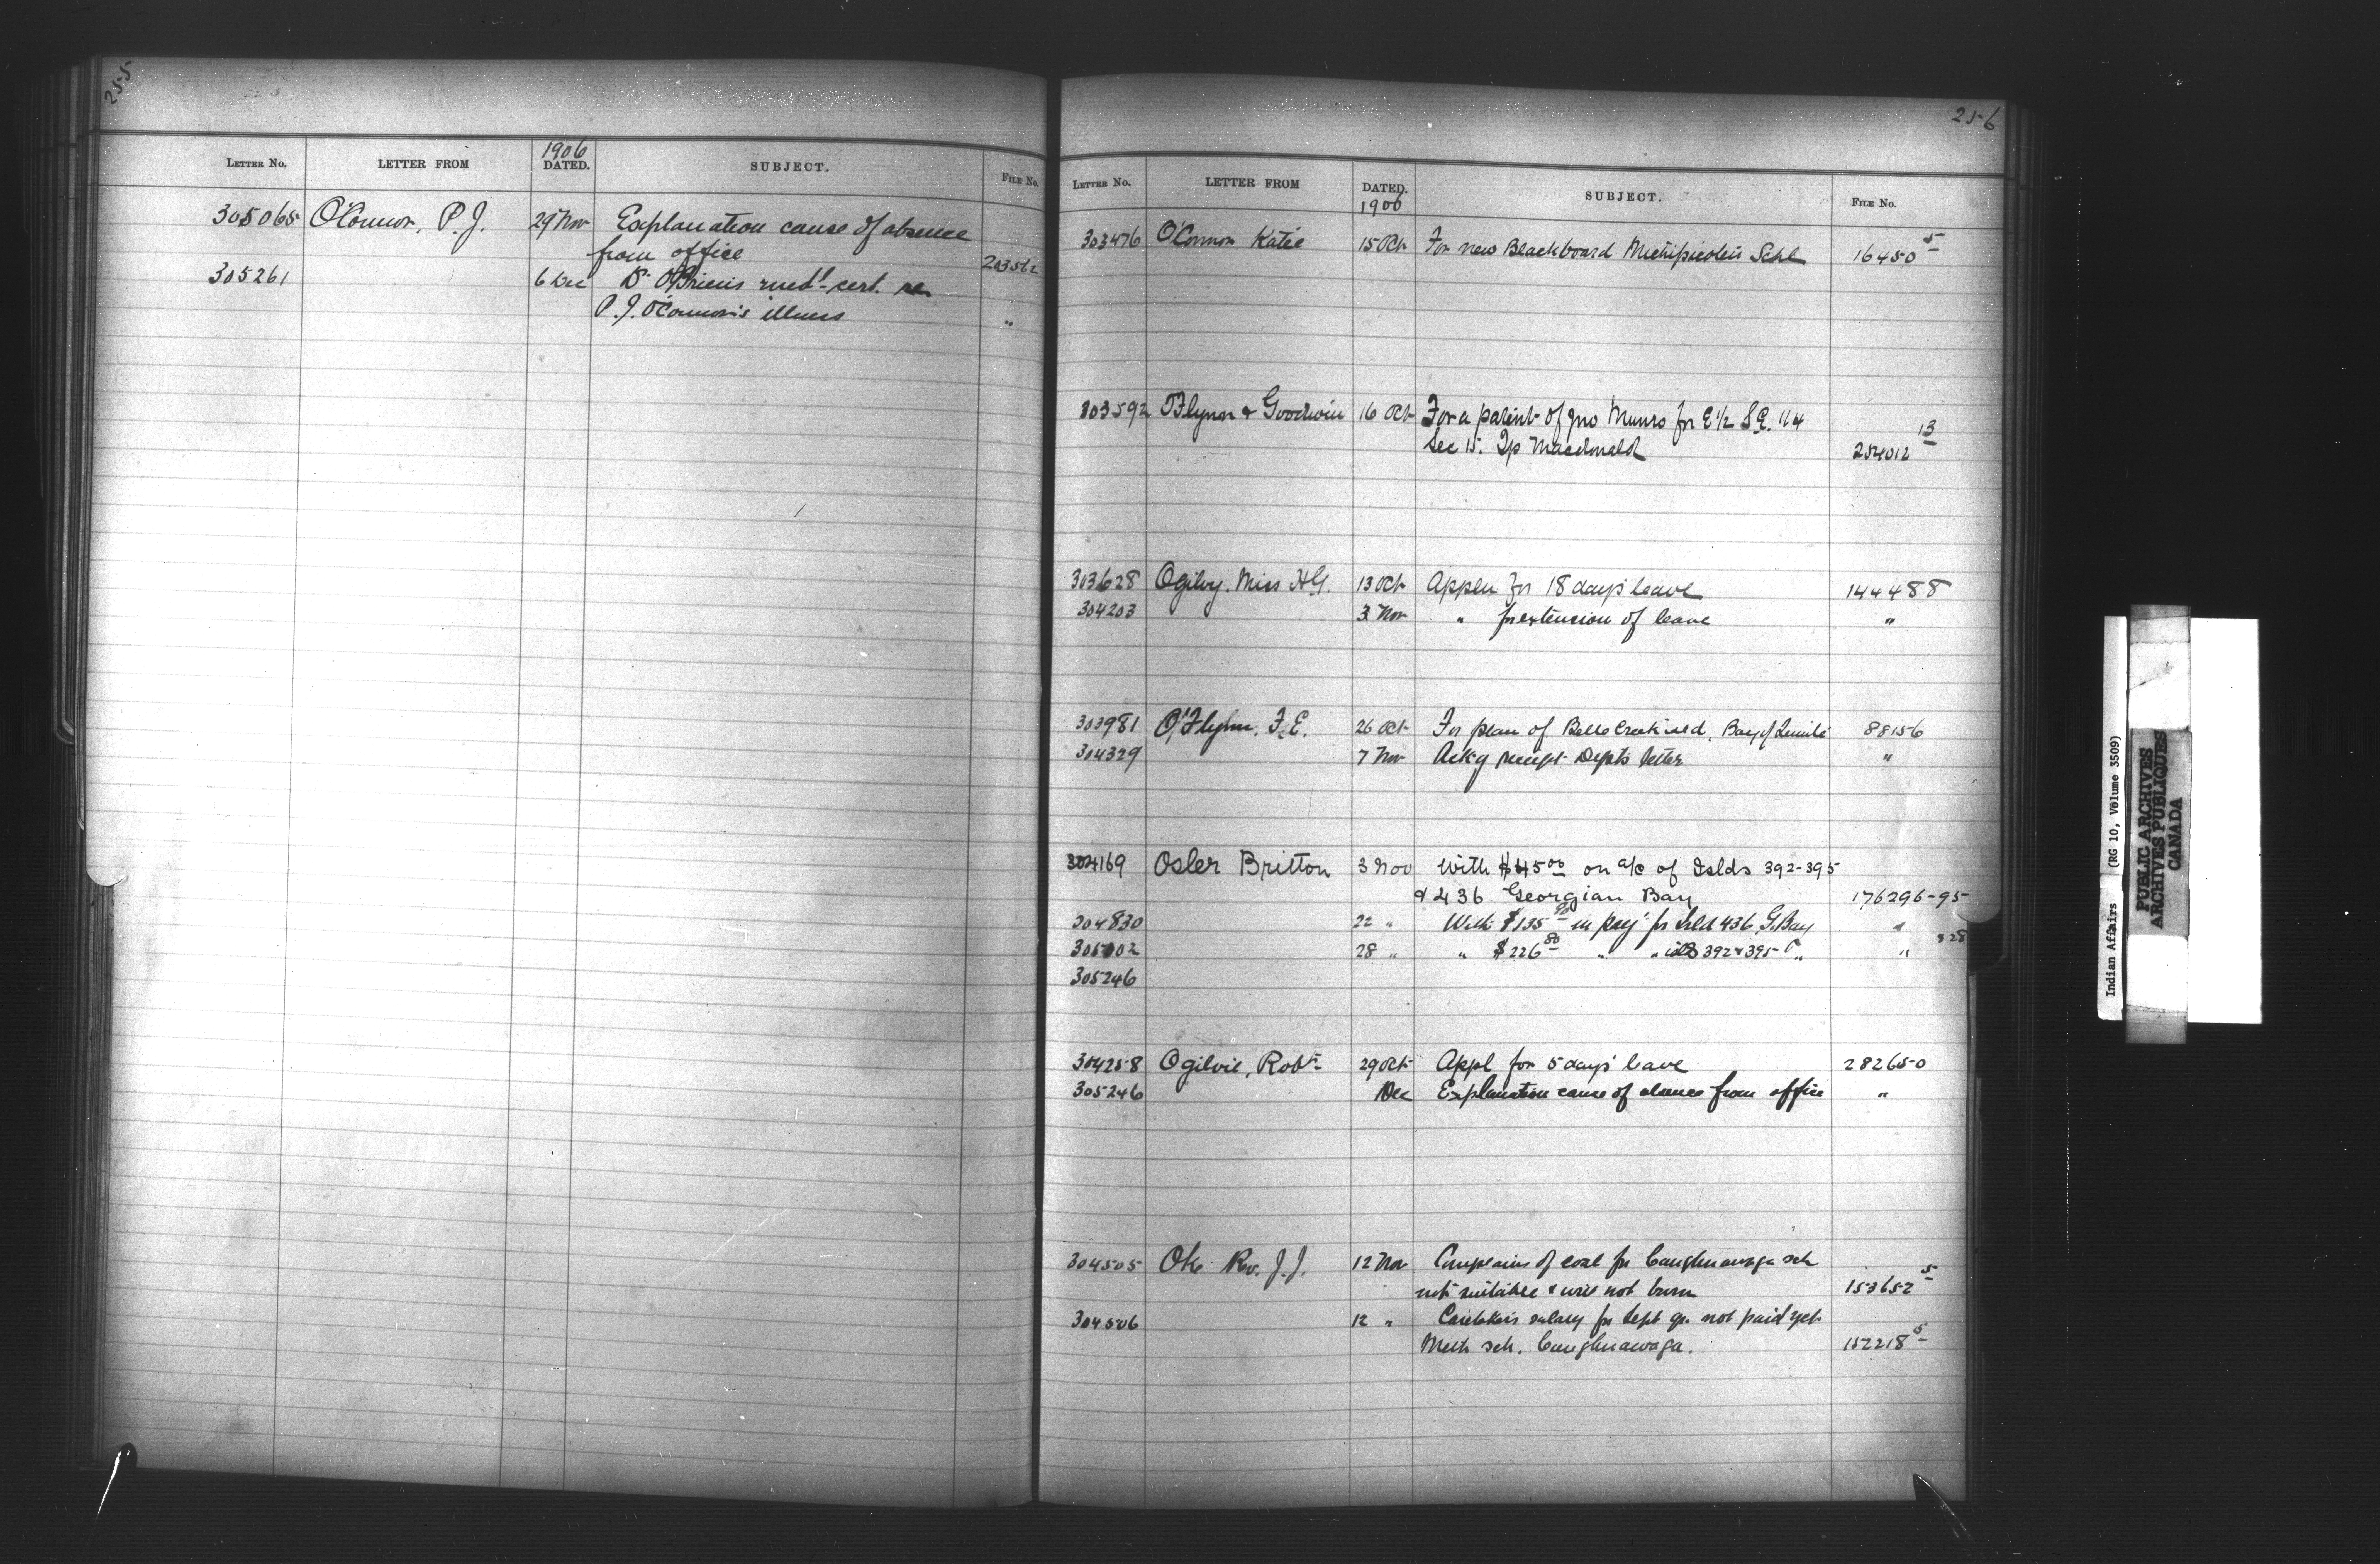 255
LETTER No. LETTER FROM 1906 DATED. SUBJECT. FILE No.
305065 O'Connor, P.J. 29 Nov Explanation cause of absence
from office 203562
305261 6 Dec Dr O'Briens med'l cert. re
P.J. O'Connor's illness "
256
LETTER No. LETTER FROM DATED. 1906 SUBJECT. FILE No.
303476 O'Connor Katie 15 Oct For new Blackboard Michipicoten Schl 16450 5
303592 O'Flynn & Goodwin 16 Oct For a patent of Jno Munro for E 1/2 S.E. 1/4
Sec 15. Tp Macdonald 254012 13
303628 Ogilvy. Miss H.G. 13 Oct Appln for 18 days leave 144488
304203 3 Nov " for extension of leave "
303981 O'Flynn. F.E. 26 Oct For plan of Belle Creek Bay of 88156
304329 7 Nov Ackg receipt Depts letter "
304169 Osler Britton 3 Nov With $45 00 on a/c of Islds 392-395
& 436 Georgian Bay 176296-95
304830 22 " With $135 in pay't for Isld 436 G. Bay "
305102 28 " " $226 80 " " islds 392 & 395 " " 328
305246
304258 Ogilvie, Robt 29 Oct Appl for 5 days' leave 282650
305246 Dec Explanation cause of absence from office "
304505 Oke Rev. J.J. 12 Nov Complains of coal for Caughnawaga sch
not suitable & will not burn 153652 5
304506 12 " Caretaker's salary for Sept qr. not paid yet
Meth sch. Caughnawaga. 152218 5
Indian Affairs (RG 10, Volume 3509)
PUBLIC ARCHIVES
ARCHIVES PUBLIQUES
CANADA